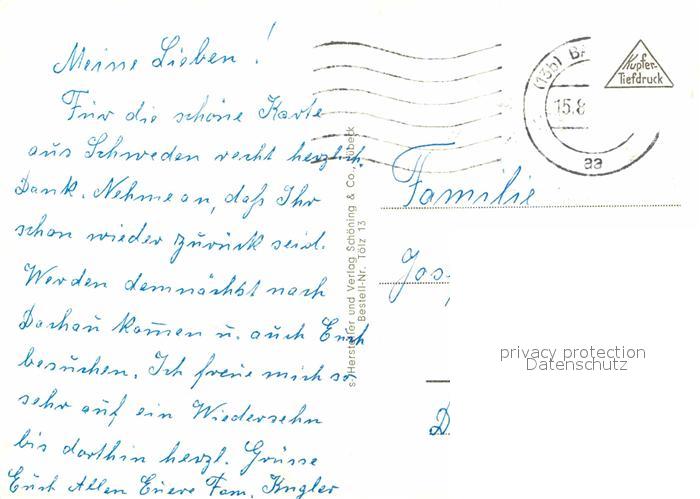 Meine Lieben!
Für die schöne Karte
aus Schweden recht herzlich.
Dank. Nehme an, daß Ihr
schon wieder zurück seid.
Werden demnächst nach
Dachau kommen u. auch Euch
besuchen. Ich freue mich so
sehr auf ein Wiedersehn
bis dorthin herzl. Grüsse
Euch Allen Euere Fam. Kugler
Hersteller und Verlag Schöning & Co., Lübeck
Bestell-Nr. Tölz 13
(13b) BA
15.8
aa
Kupfer-
Tiefdruck
Familie
Jos.
D
privacy protection
Datenschutz